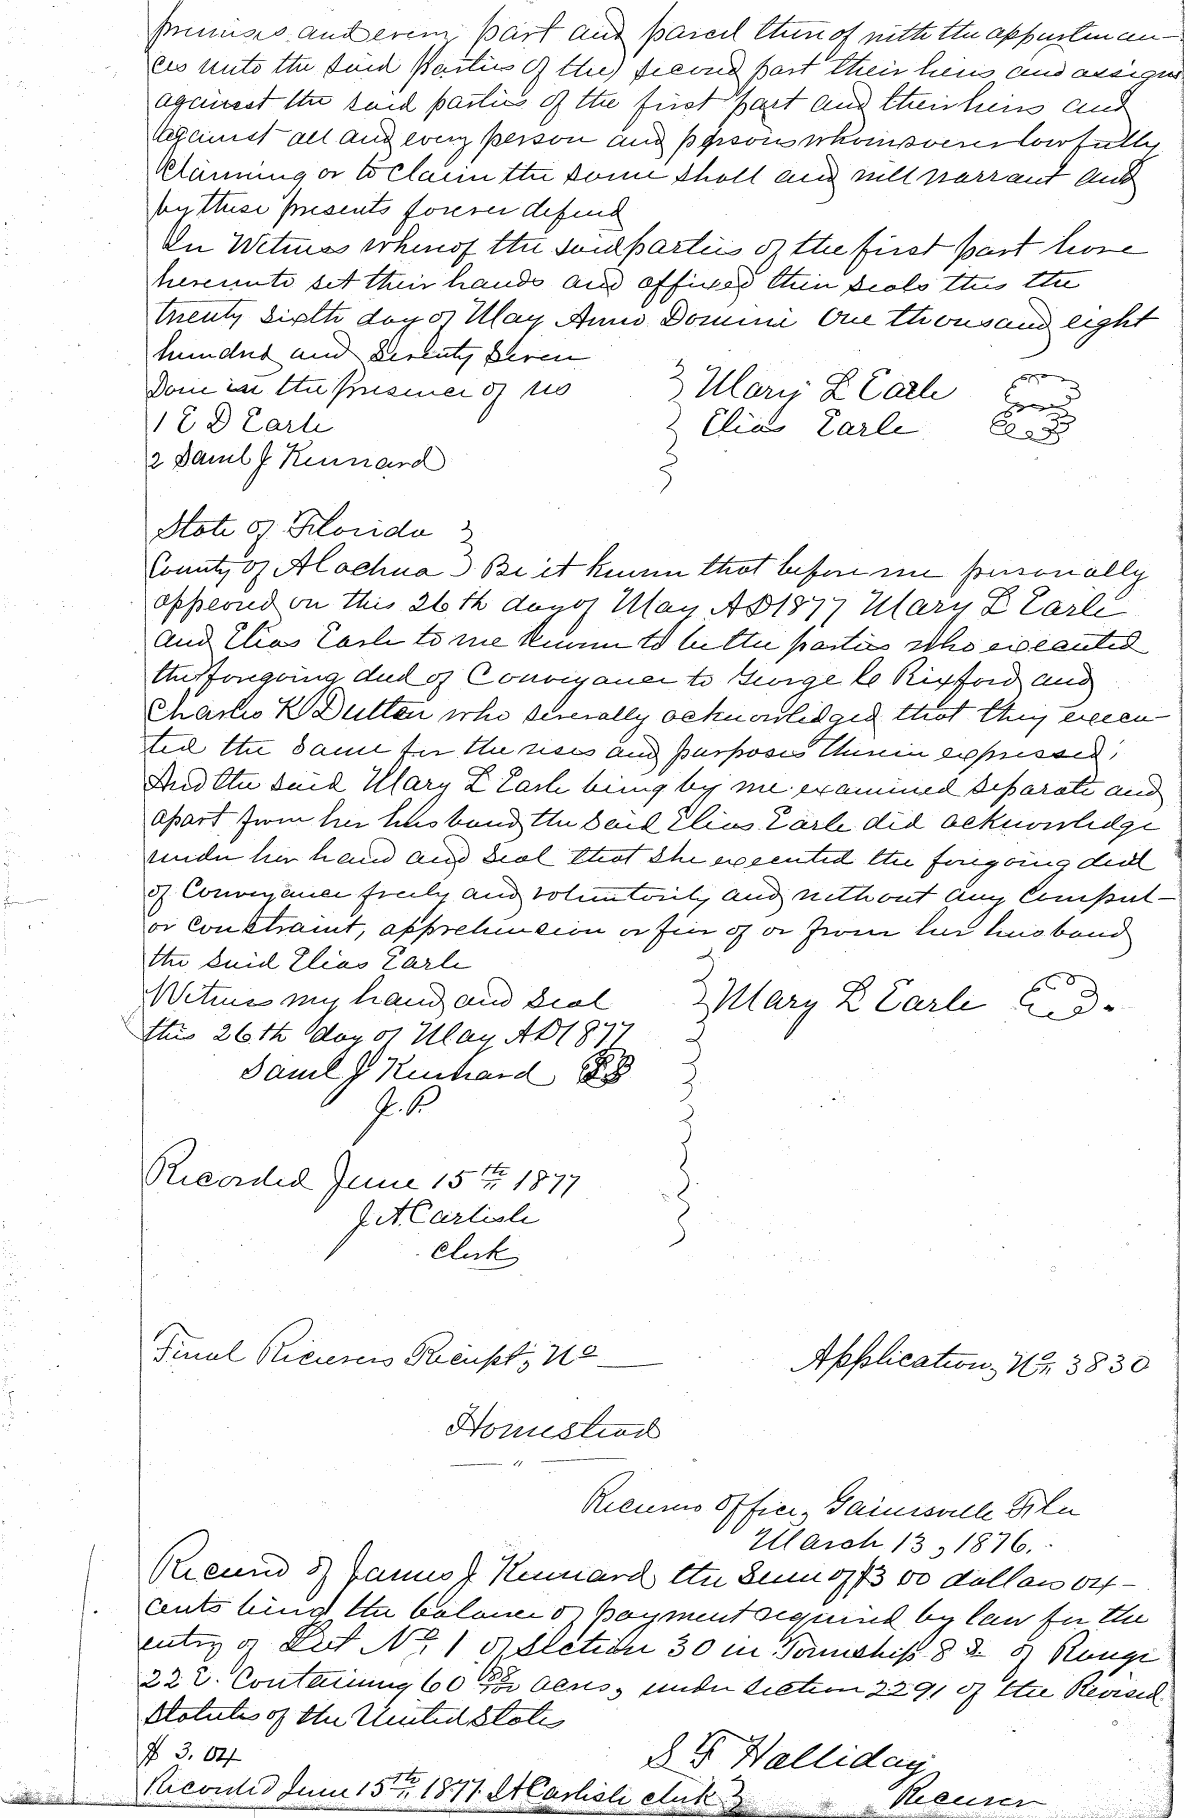 premises and every part and parcel thereof with the appurtenan-
ces unto the said Parties of the second part their heirs and assigns
against the said parties of the first part and their heirs and
against all and every person and persons whomsoever lawfully
Claiming or to Claim the same shall and will warrant and
by these presents forever defend
In Witness whereof the said parties of the first part have
hereunto set their hands and affixed their seals this the
twenty sixth day of May Anno Domini One thousand eight
hundred and Seventy Seven
Done in the presence of us
Mary L Earle
1 E D Earle
Elias Earle
2 Saml J Kennard
State of Florida
County of Alachua Be it known that before me personally
appeared on this 26th day of May AD 1877 Mary L Earle
and Elias Earle to me known to be the parties who executed
the foregoing deed of Conveyance to George C Rixford and
Charles K Dutton who severally acknowledged that they execu-
ted the same for the uses and purposes therein expressed;
And the said Mary L Earle being by me examined separate and
apart from her husband the said Elias Earle did acknowledge
under her hand and seal that she executed the foregoing deed
of Conveyance freely and voluntarily and without any Compul-
or constraint, apprehension or fear of or from her husband
the said Elias Earle
Witness my hand and seal
Mary L Earle
this 26th day of May AD 1877
Saml J Kennard
J. P.
Recorded June 15th 1877
J. A. Carlisle
Clerk
Final Receivers Receipt, No
Application, No. 3830
Homestead
Receivers Office, Gainesville Fla
March 13, 1876.
Received of James J Kennard the Sum of $3 00 dollars 04-
cents being the balance of payment required by law for the
entry of Lot No. 1 of Section 30 in Township 8 S of Range
22 E. Containing 60 88/100 acres, under section 2291 of the Revised
Statutes of the United States
$ 3.04
S F Halliday
Recorded June 15th 1877. J A Carlisle clerk
Receiver